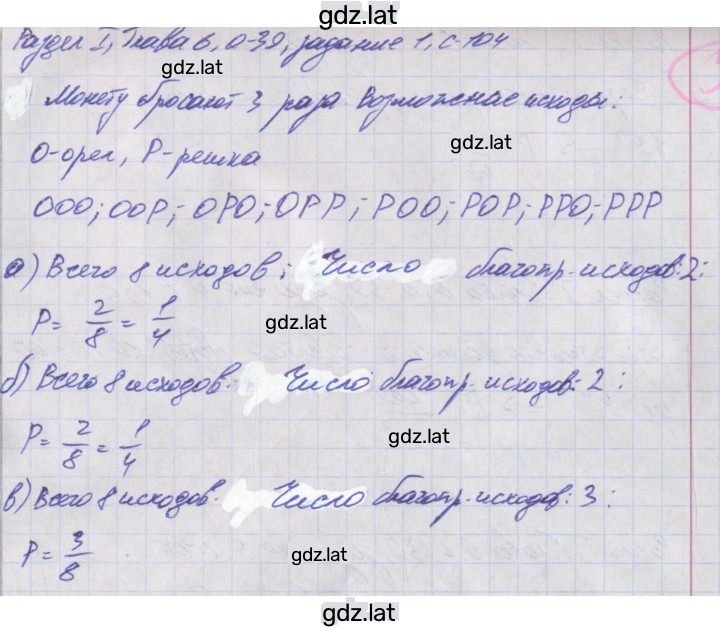 gdz.lat
Раздел I, Глава 6, О-39, задание 1, с-104
gdz.lat
Монету бросают 3 раза. Возможные исходы:
gdz.lat
О-орел, Р-решка
ООО; ООР; ОРО; ОРР; РОО; РОР; РРО; РРР
а) Всего 8 исходов; Число благопр. исходов: 2:
P = 2/8 = 1/4
gdz.lat
б) Всего 8 исходов. Число благопр. исходов: 2:
P = 2/8 = 1/4
gdz.lat
в) Всего 8 исходов. Число благопр. исходов: 3:
P = 3/8
gdz.lat
gdz.lat